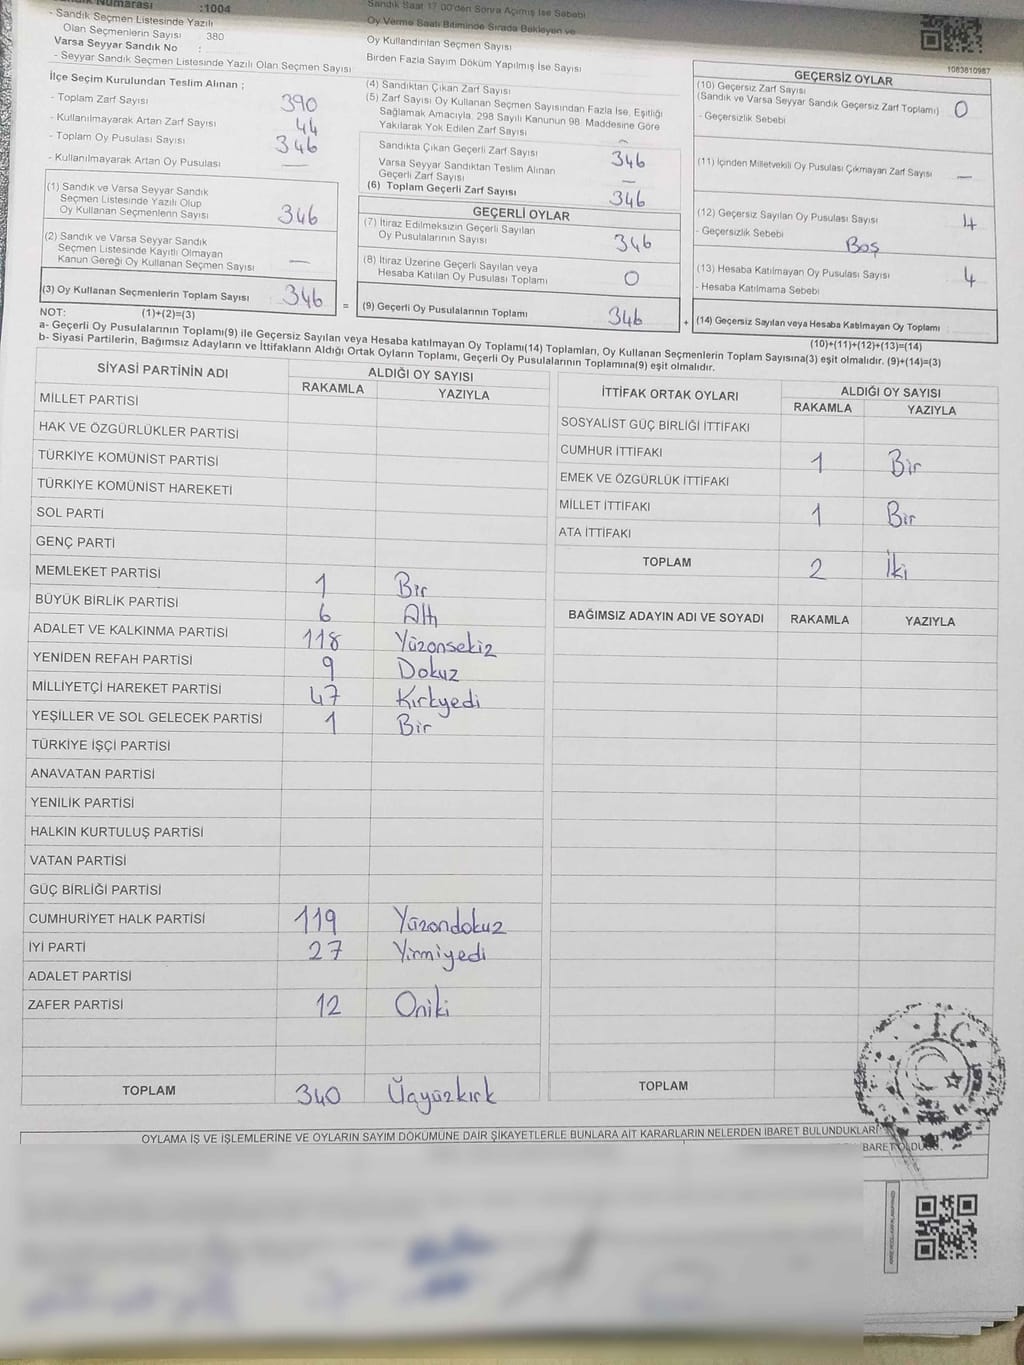 Sandık Numarası :1004
- Sandık Seçmen Listesinde Yazılı
Olan Seçmenlerin Sayısı 380
Varsa Seyyar Sandık No :
- Seyyar Sandık Seçmen Listesinde Yazılı Olan Seçmen Sayısı
İlçe Seçim Kurulundan Teslim Alınan ;
- Toplam Zarf Sayısı 390
- Kullanılmayarak Artan Zarf Sayısı 44
- Toplam Oy Pusulası Sayısı 346
- Kullanılmayarak Artan Oy Pusulası —
(1) Sandık ve Varsa Seyyar Sandık
Seçmen Listesinde Yazılı Olup
Oy Kullanan Seçmenlerin Sayısı 346
(2) Sandık ve Varsa Seyyar Sandık
Seçmen Listesinde Kayıtlı Olmayan
Kanun Gereği Oy Kullanan Seçmen Sayısı —
(3) Oy Kullanan Seçmenlerin Toplam Sayısı 346 =
Sandık Saat 17.00'den Sonra Açılmış İse Sebebi
Oy Verme Saati Bitiminde Sırada Bekleyen ve
Oy Kullandırılan Seçmen Sayısı
Birden Fazla Sayım Döküm Yapılmış İse Sayısı
(4) Sandıktan Çıkan Zarf Sayısı
(5) Zarf Sayısı Oy Kullanan Seçmen Sayısından Fazla İse, Eşitliği
Sağlamak Amacıyla, 298 Sayılı Kanunun 98. Maddesine Göre
Yakılarak Yok Edilen Zarf Sayısı
Sandıkta Çıkan Geçerli Zarf Sayısı 346
Varsa Seyyar Sandıktan Teslim Alınan
Geçerli Zarf Sayısı —
(6) Toplam Geçerli Zarf Sayısı 346
GEÇERLİ OYLAR
(7) İtiraz Edilmeksizin Geçerli Sayılan
Oy Pusulalarının Sayısı 346
(8) İtiraz Üzerine Geçerli Sayılan veya
Hesaba Katılan Oy Pusulası Toplamı 0
(9) Geçerli Oy Pusulalarının Toplamı 346 +
1083810987
GEÇERSİZ OYLAR
(10) Geçersiz Zarf Sayısı
(Sandık ve Varsa Seyyar Sandık Geçersiz Zarf Toplamı) 0
- Geçersizlik Sebebi
(11) İçinden Milletvekili Oy Pusulası Çıkmayan Zarf Sayısı —
(12) Geçersiz Sayılan Oy Pusulası Sayısı 4
- Geçersizlik Sebebi Boş
(13) Hesaba Katılmayan Oy Pusulası Sayısı 4
- Hesaba Katılmama Sebebi
(14) Geçersiz Sayılan veya Hesaba Katılmayan Oy Toplamı
NOT: (1)+(2)=(3) (10)+(11)+(12)+(13)=(14)
a- Geçerli Oy Pusulalarının Toplamı(9) ile Geçersiz Sayılan veya Hesaba katılmayan Oy Toplamı(14) Toplamları, Oy Kullanan Seçmenlerin Toplam Sayısına(3) eşit olmalıdır. (9)+(14)=(3)
b- Siyasi Partilerin, Bağımsız Adayların ve İttifakların Aldığı Ortak Oyların Toplamı, Geçerli Oy Pusulalarının Toplamına(9) eşit olmalıdır.
SİYASİ PARTİNİN ADI ALDIĞI OY SAYISI
RAKAMLA YAZIYLA
MİLLET PARTİSİ
HAK VE ÖZGÜRLÜKLER PARTİSİ
TÜRKİYE KOMÜNİST PARTİSİ
TÜRKİYE KOMÜNİST HAREKETİ
SOL PARTİ
GENÇ PARTİ
MEMLEKET PARTİSİ 1 Bir
BÜYÜK BİRLİK PARTİSİ 6 Altı
ADALET VE KALKINMA PARTİSİ 118 Yüzonsekiz
YENİDEN REFAH PARTİSİ 9 Dokuz
MİLLİYETÇİ HAREKET PARTİSİ 47 Kırkyedi
YEŞİLLER VE SOL GELECEK PARTİSİ 1 Bir
TÜRKİYE İŞÇİ PARTİSİ
ANAVATAN PARTİSİ
YENİLİK PARTİSİ
HALKIN KURTULUŞ PARTİSİ
VATAN PARTİSİ
GÜÇ BİRLİĞİ PARTİSİ
CUMHURİYET HALK PARTİSİ 119 Yüzondokuz
İYİ PARTİ 27 Yirmiyedi
ADALET PARTİSİ
ZAFER PARTİSİ 12 Oniki
TOPLAM 340 Üçyüzkırk
İTTİFAK ORTAK OYLARI ALDIĞI OY SAYISI
RAKAMLA YAZIYLA
SOSYALİST GÜÇ BİRLİĞİ İTTİFAKI
CUMHUR İTTİFAKI 1 Bir
EMEK VE ÖZGÜRLÜK İTTİFAKI
MİLLET İTTİFAKI 1 Bir
ATA İTTİFAKI
TOPLAM 2 İki
BAĞIMSIZ ADAYIN ADI VE SOYADI RAKAMLA YAZIYLA
TOPLAM
T.C.
OYLAMA İŞ VE İŞLEMLERİNE VE OYLARIN SAYIM DÖKÜMÜNE DAİR ŞİKAYETLERLE BUNLARA AİT KARARLARIN NELERDEN İBARET BULUNDUKLARI